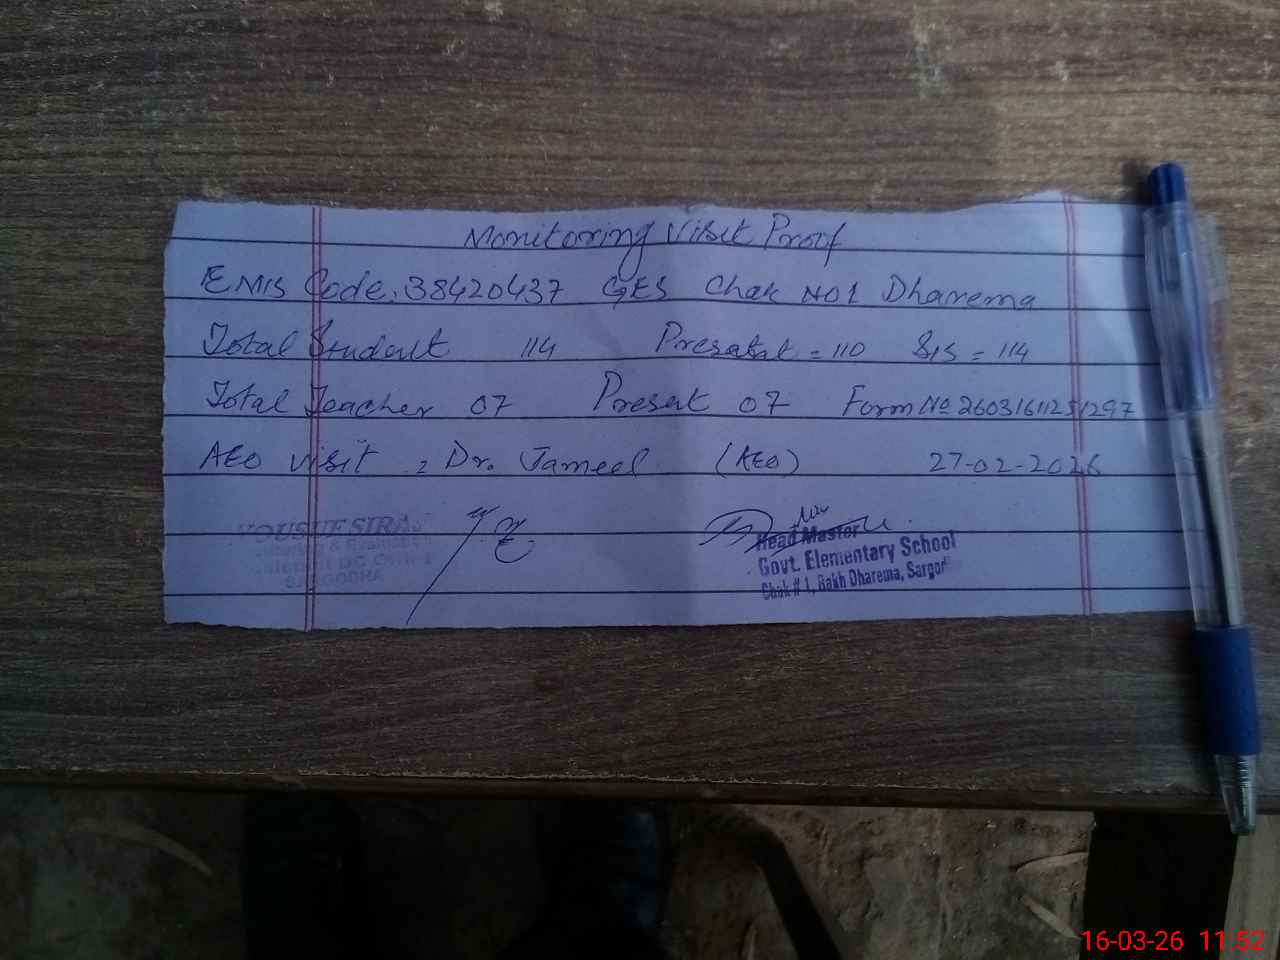 Monitoring Visit Proof
EMIS Code: 38420437 GES Chak No 1 Dharema
Total Student 114 Presatat = 110 SIS = 114
Total Teacher 07 Present 07 Form No 26031611251297
AEO visit : Dr. Jameel (AEO) 27-02-2026
YOUSUF SIRAJ
SARGODHA
Head Master
Govt. Elementary School
Chak # 1, Rakh Dharema, Sargodha
16-03-26 11:52